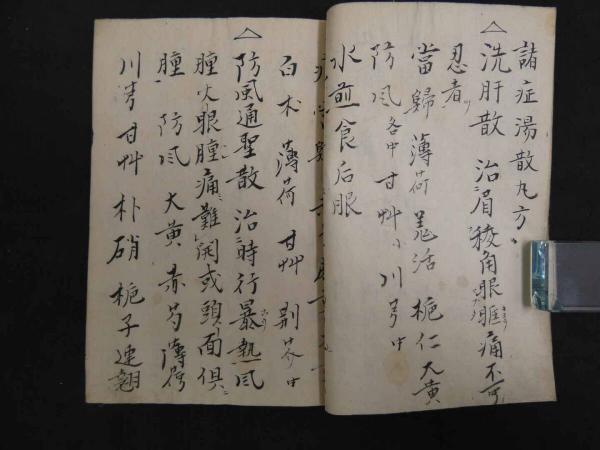 諸症湯散丸方
△
洗肝散 治眉稜角眼眶痛不可
忍者
當歸 薄荷 羌活 梔仁 大黄
防风各中 甘艸小 川芎中
水煎食后服
白术 薄荷 甘艸 荆芥中
△
防風通聖散 治時行暴熱风
腫火眼腫痛難開或頭面俱
腫 防风 大黄 赤芍 薄荷
川芎 甘艸 朴硝 梔子 連翹